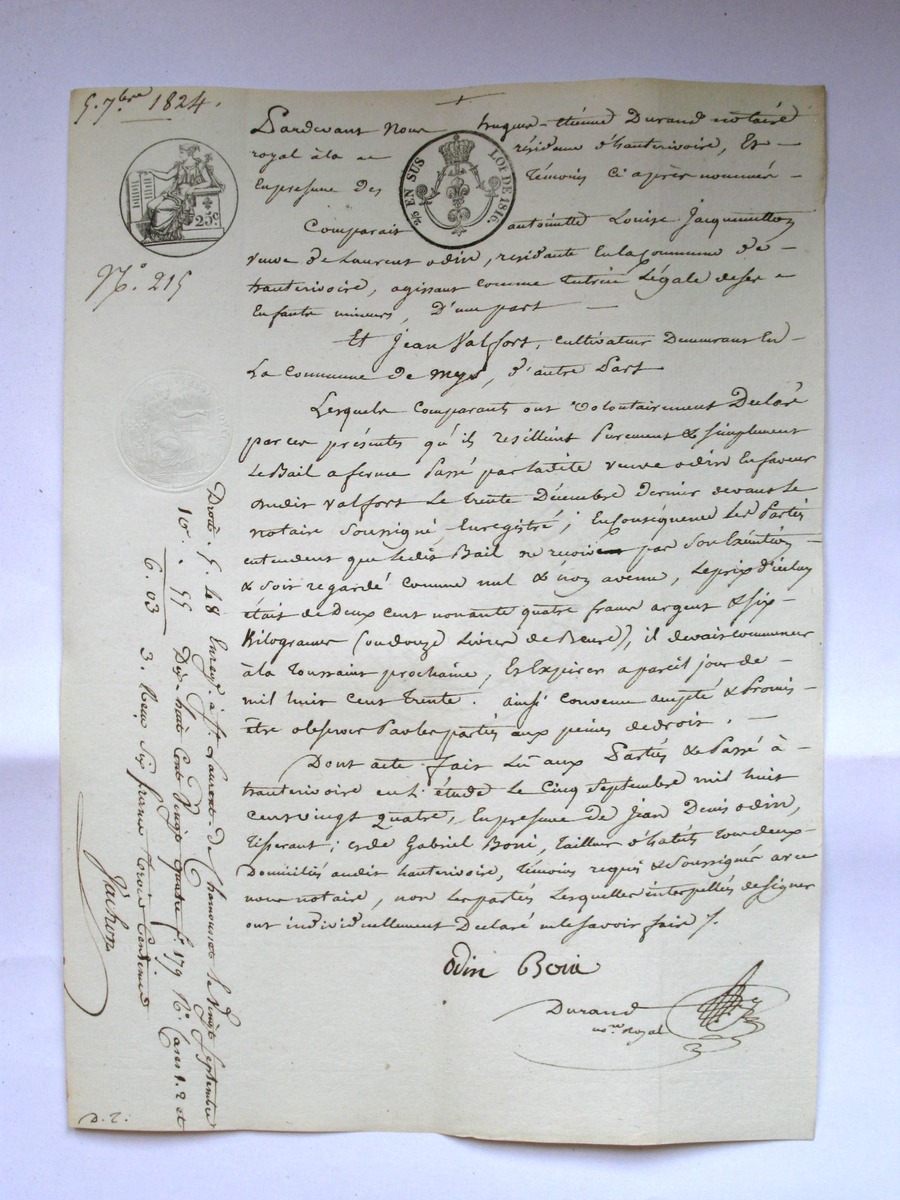 5. 7bre 1824.
Pardevant Nous hugues-étienne Durand notaire
royal à la résidence d'hauterivoire, Et
En presence des témoins ci après nommés
25 EN SUS LOI DE 1816
25c.
Comparait antoinette Louise Jacquemetton
veuve de Laurent odin, residante En la Commune de
N.o 215
hauterivoire, agissant comme tutrice Légale de ses
Enfants mineurs, D'une part
Et Jean Valfort, cultivateur Demeurant En
La Commune de meys, D'autre Part
Lesquels Comparants ont volontairement Declaré
par ces présentes qu'ils resilient Purement & simplement
Le Bail a ferme Passé par la dite veuve odin En faveur
dudit valfort Le trente Décembre Dernier devant Le
notaire Soussigné, Enregistré; En Conséquence Les Parties
entendent que ledit Bail ne recoive par Son Exécution
& soit regardé comme nul & non avenu, Le prix d'icelui
était de Deux cent nonante quatre francs argent & six
Kilogrames (ou douze Livres de Beure), il devait commencer
à la toussaint prochaine, Et Expirer a pareil jour de
mil huit cent trente. ainsi convenu accepté & Promis
être observé Par les parties aux peines de droit.
Dont acte. fait Lu aux Parties & Passé à
hauterivoire en L'étude Le Cinq Septembre mil huit
cent vingt quatre, En presence de Jean Denis odin,
tisserant; et de Gabriel Boni, tailleur d'habits tous deux
Domiciliés audit hauterivoire, témoins requis & Soussignés avec
nous notaire, non les parties Lesquelles interpellés de signer
ont individuellement Declaré ne le savoir faire /.
odin Boni
Durand
no.re Royal
Droit. 5. 48 Enreg.é à St Laurent de Chamousset le vingt septembre
10.e . 55 Dix-huit Cent Vingt quatre f.o 179 R.o Cases 1. 2 et
6. 03 3. Reçu Six francs trois Centimes
Jachon
D. T.